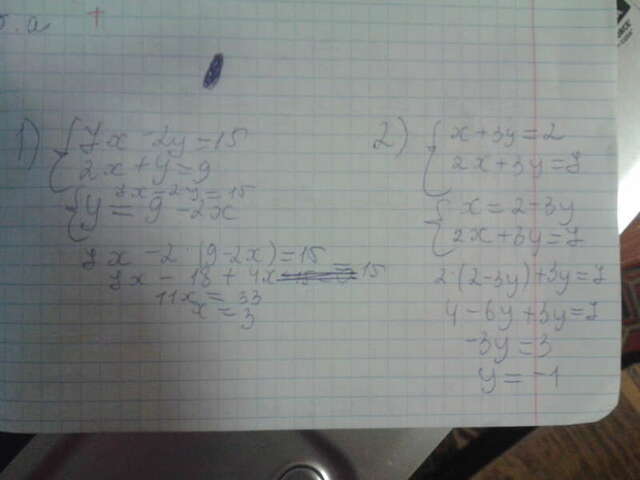 б.а
1) { 7x - 2y = 15
2x + y = 9
{ 7x - 2y = 15
y = 9 - 2x
7x - 2 · (9 - 2x) = 15
7x - 18 + 4x = 15
11x = 33
x = 3
2) { x + 3y = 2
2x + 3y = 7
{ x = 2 - 3y
2x + 3y = 7
2 · (2 - 3y) + 3y = 7
4 - 6y + 3y = 7
-3y = 3
y = -1